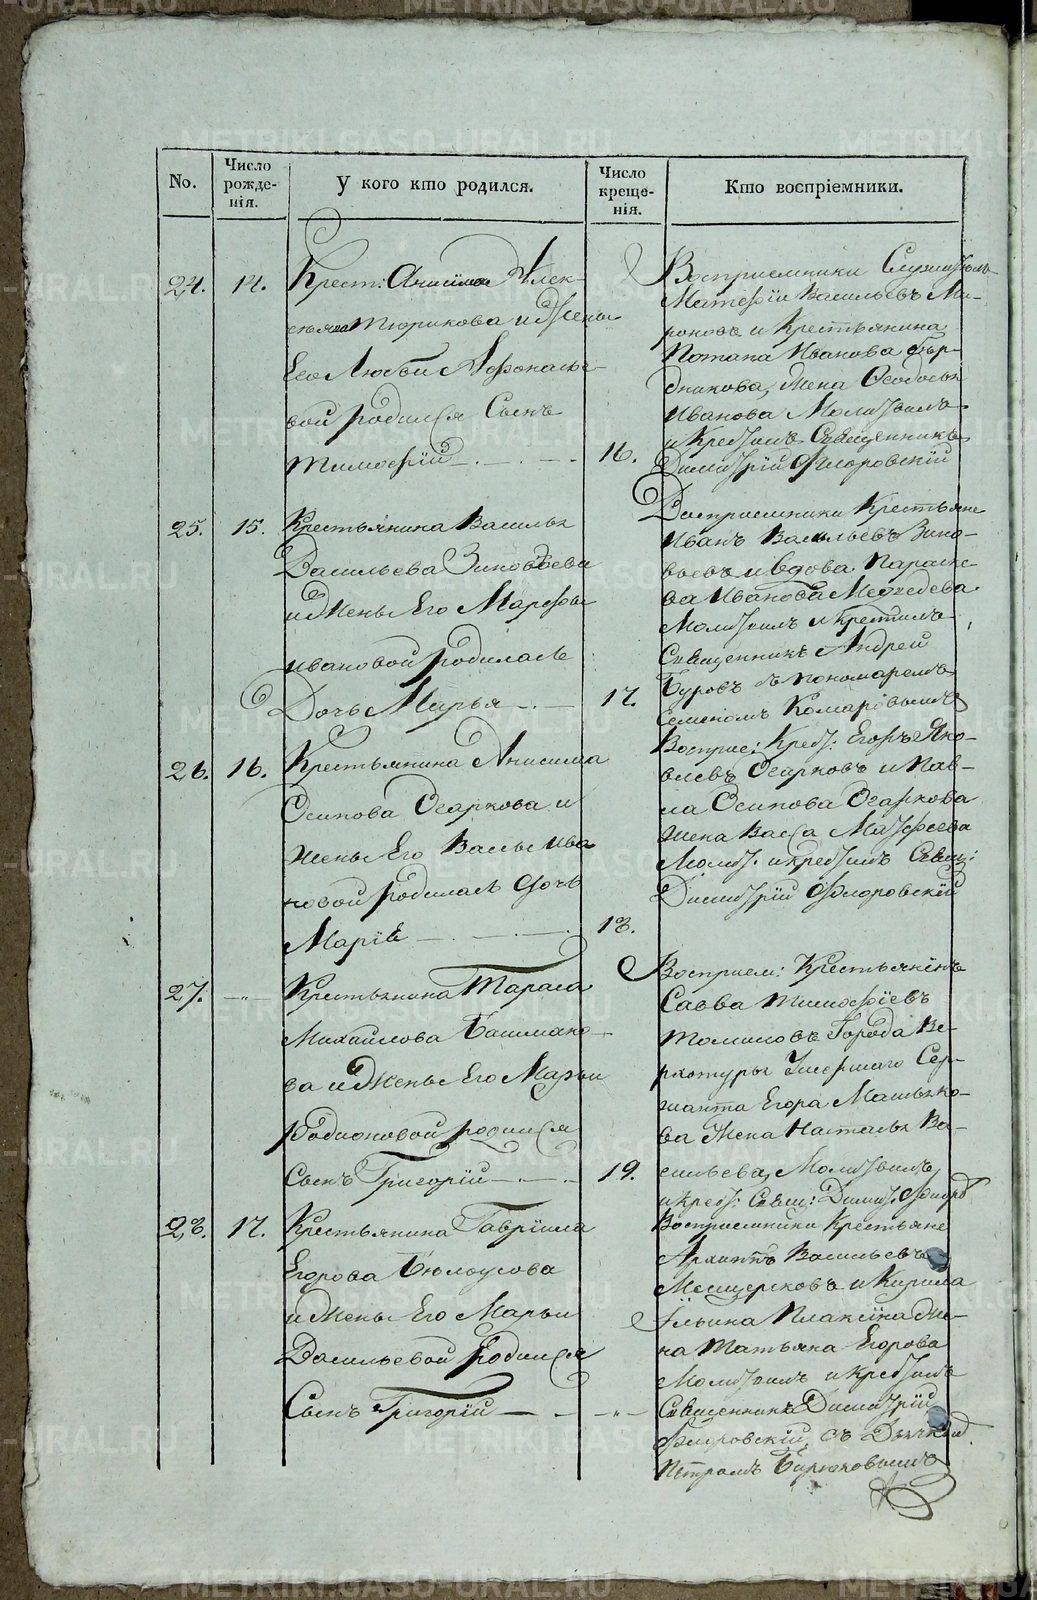 No.
Число рожде-нія.
У кого кто родился.
Число креще-нія.
Кто воспріемники.
24.
14.
Крест: Анисима Алек-
сеева Тюрикова и Жены
Его Любви Афонасье-
вой родился Сынъ
Тимофѣй
16.
Восприемники Служитель
Матфѣй Васильевъ Ми-
роновъ и Крестьянина
Потапа Иванова
жена Феодосья
Иванова Молитвилъ
и Крестилъ Священникъ
Димитрій Флоровскій
25.
15.
Крестьянина Василья
Васильева Зиновьева
и Жены Его Марфы
Ивановой родилась
Дочь Марья
17.
Восприемники Крестьяне
Иванъ Васильевъ Зино-
вьевъ и вдова Параске-
ва Иванова Медведева
Молитвилъ и крестилъ
Священникъ Андрей
Буровъ съ пономаремъ
Семеномъ Комаровымъ
26.
16.
Крестьянина Анисима
Осипова Огаркова и
жены Его Вассы Ива
новой родилась дочь
Марія
18.
Восприе: Крест: Егоръ Яко-
влевъ Огарковъ и Пав-
ла Осипова Огаркова
жена Васса Матфеева
Молит. и крестилъ Свящ:
Димитрій Флоровскій
27.
-"-
Крестьянина Тараса
Михайлова Башмако-
ва и Жены Его Марьи
Родионовой родился
Сынъ Григорій
19.
Восприем: Крестьянинъ
Савва Тимофѣевъ
Томиловъ Города Ве-
рхотурья Умершаго Сер-
жанта Егора
жена Наталья Ва-
сильева, Молитвилъ
и крест: Свящ: Димит. Флоров
28.
17.
Крестьянина Гавріила
Егорова Бѣлоусова
и Жены Его Марьи
Васильевой родился
Сынъ Григорій
-"-
Восприемники Крестьяне
Архипъ Васильевъ
Мещеряковъ и Кирила
Ильина Плаксина же-
на Татьяна Егорова
Молитвилъ и крестилъ
Священникъ Димитрій
Флоровскій, съ Дьячкомъ
Петромъ Бирюковымъ
METRIKI.GASO-URAL.RU